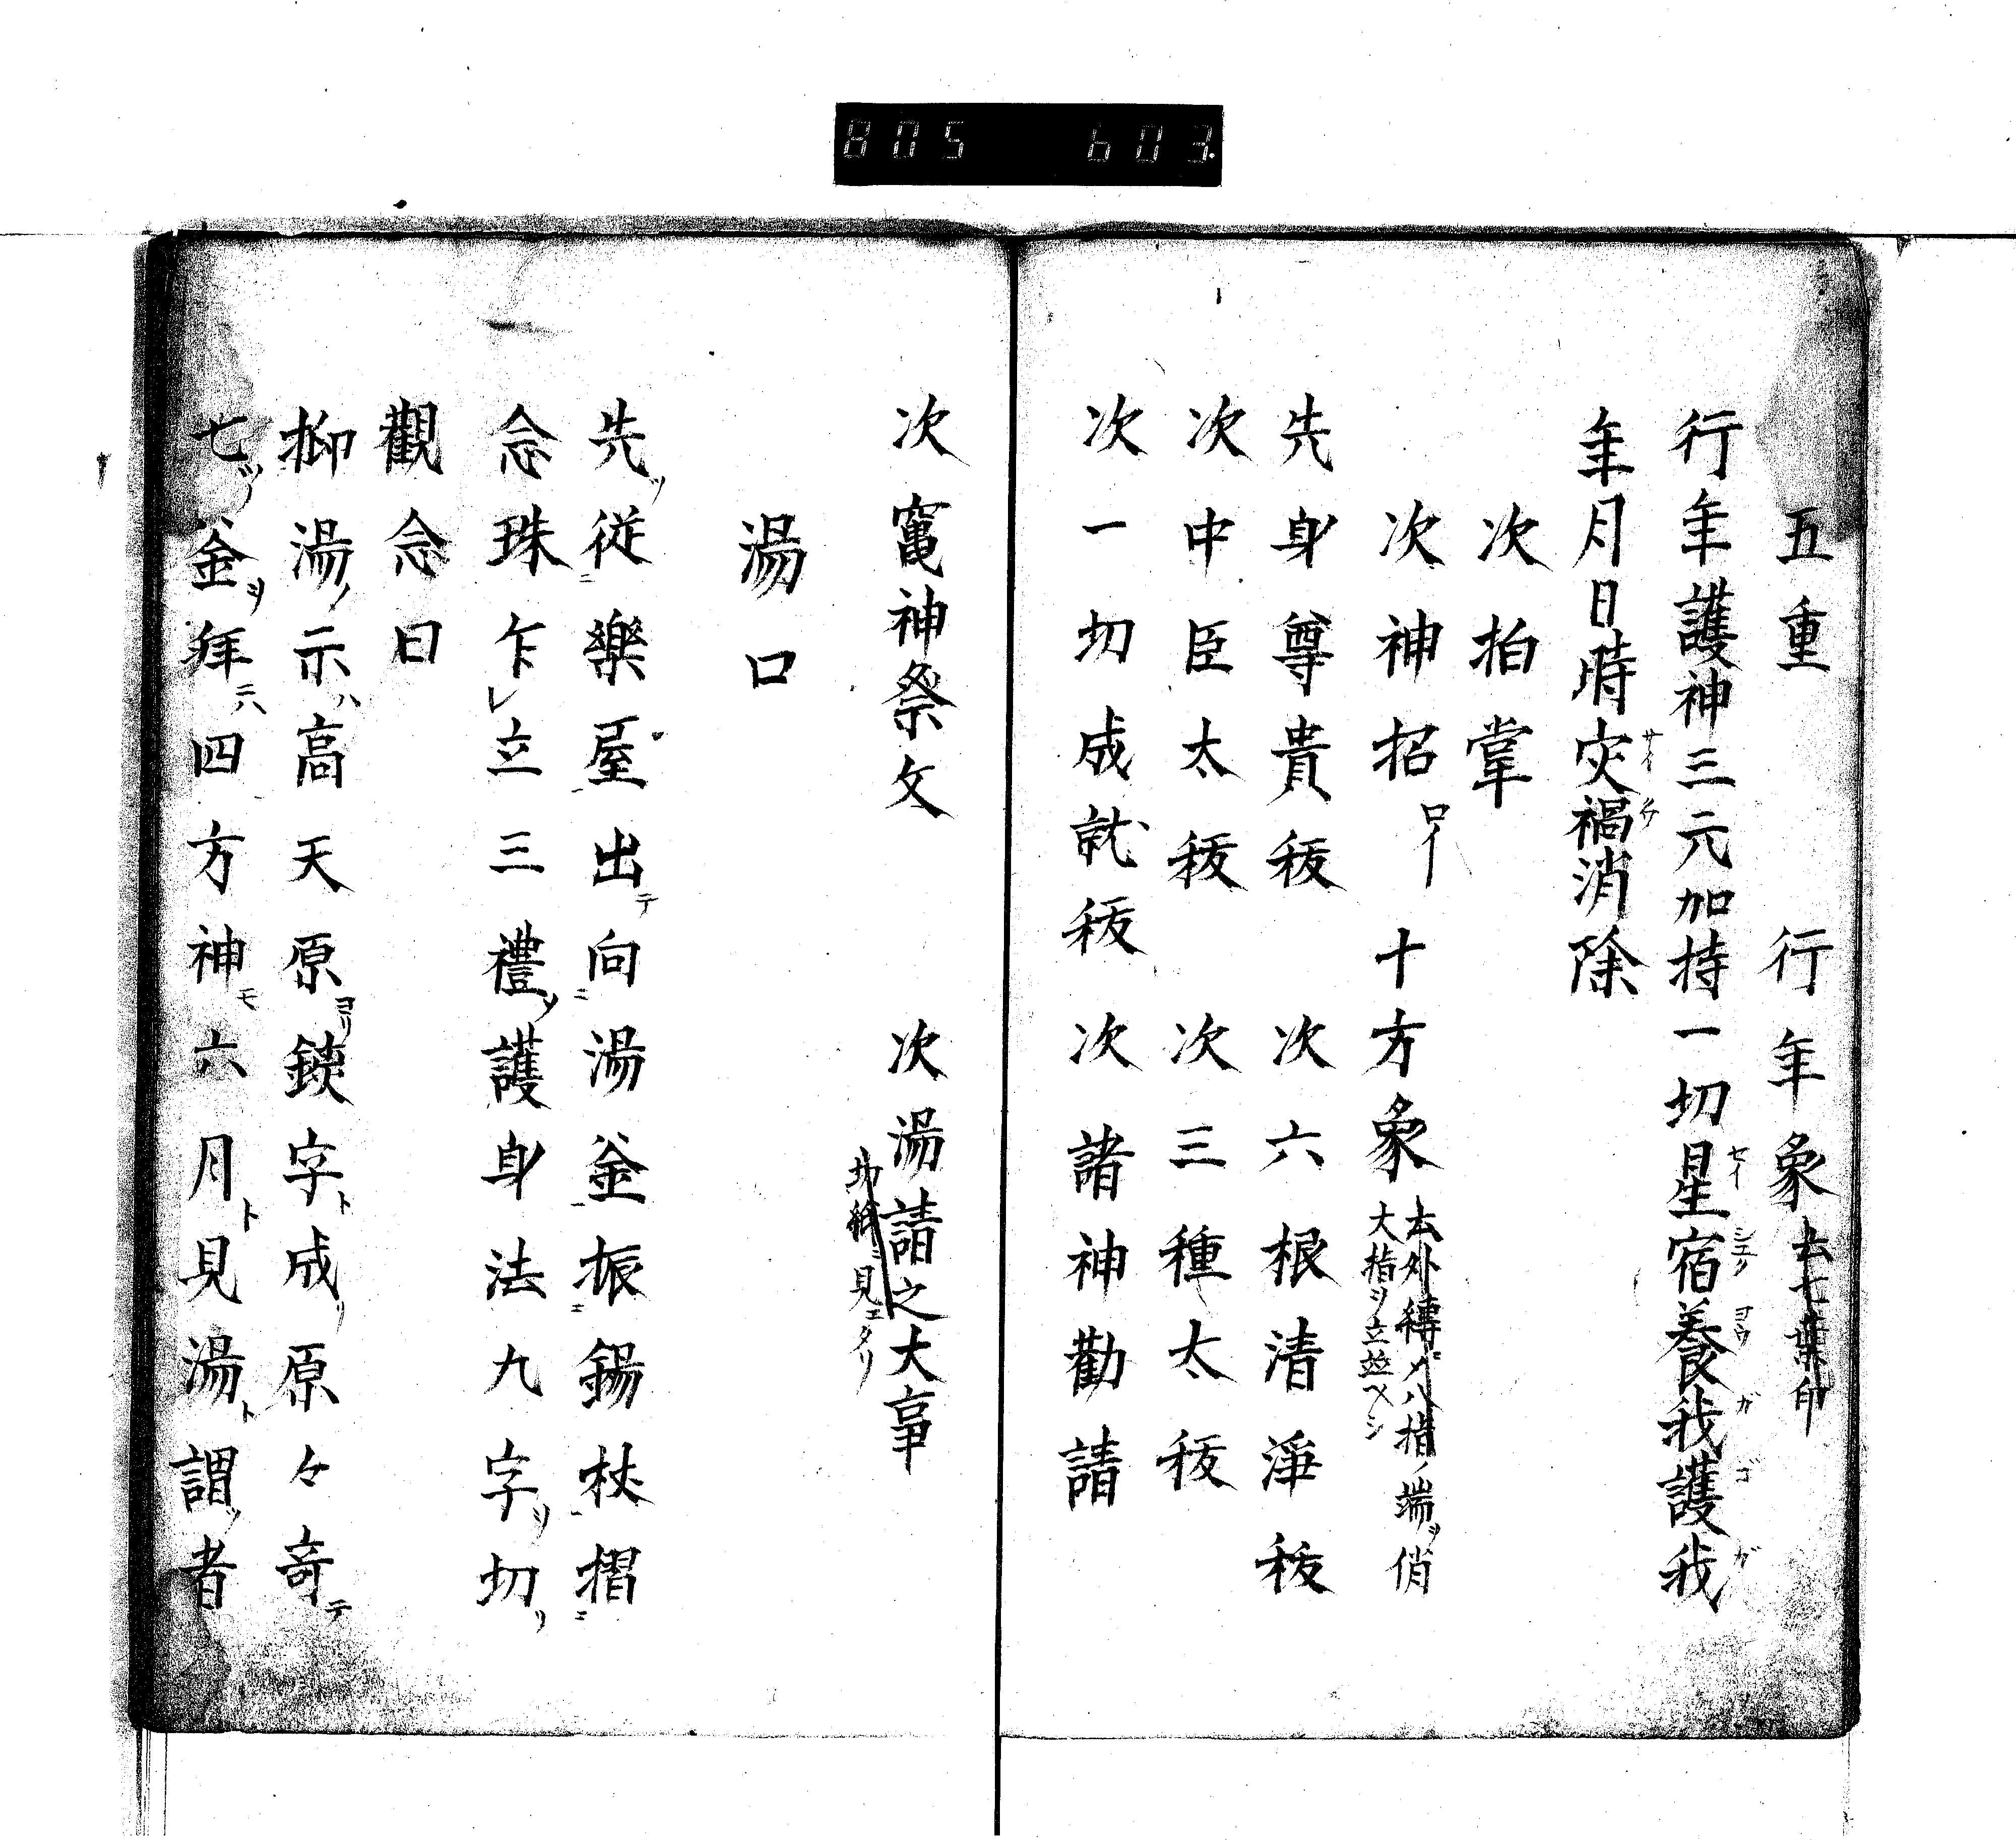 805 603.
五重 行年象 云七葉印
行年護神三元加持一切星宿養我護我
年月日時灾禍消除
次拍掌
次神招 口イ 十方象 云外縛〆八指ノ端ヲ俏
大指ヲ立並ヘシ
先身曽貴秡 次六根清淨秡
次中臣太秡 次三種太秡
次一切成就秡 次諸神勸請
次竃神祭文 次湯請之大事
見エタリ
湯口
先ツ従ニ樂屋一出テ向ニ湯釜一振ニ錫杖一摺ニ
念珠乍レ立三禮ツ護身法九字ヲ切リ
觀念曰
抑湯ノ示ハ高天原ヨリ鋏字ト成リ原々奇テ
七ツノ釜ヲ拜ニハ四方神モ六月ト見湯ト謂ツ者